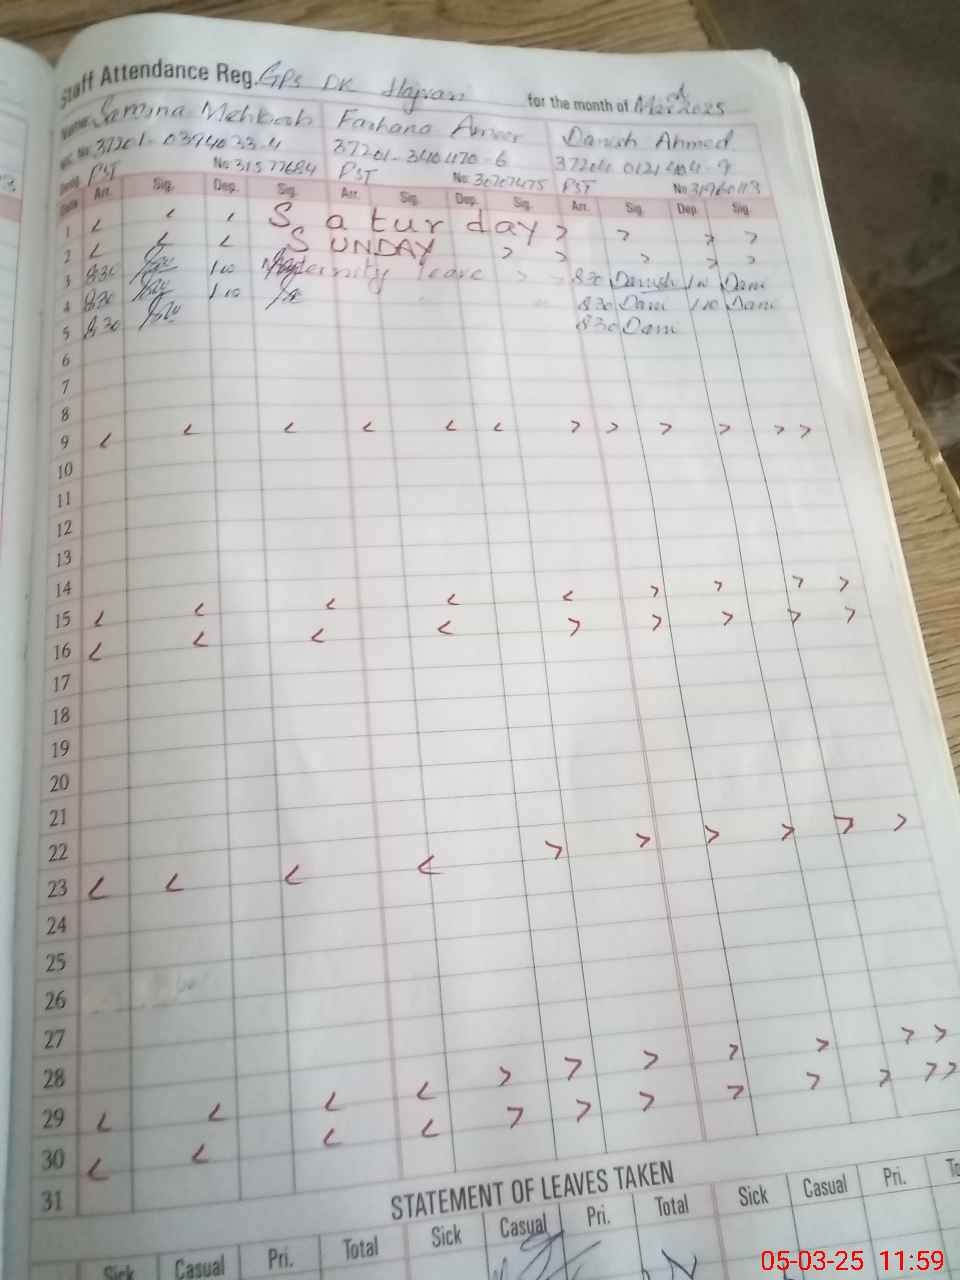 Staff Attendance Reg. GPS DK Hajran for the month of Mar 2025
Name Samina Mehboob Farhana Ameer Danish Ahmed
NIC. No. 37201-0394033-4 37201-3404170-6 37201 0121404-9
PST No 31577684 PST No: 30707475 PST No 31960113
Date Arr. Sig. Dep. Sig. Arr. Sig. Dep. Sig. Arr. Sig. Dep. Sig.
1 < < , S a t u r d a y > > > >
2 < < < S UNDAY > > > > >
3 8 30 1 00 Maternity leave > > 8 30 Danish 1 00 Dani
4 8 30 1 00 8 30 Dani 1 00 Dani
5 8 30 8 30 Dani
6
7
8
9 < < < < < < > > > > > >
10
11
12
13
14
15 < < < < < > > > >
16 < < < < > > > > >
17
18
19
20
21
22
23 < < < < > > > > > >
24
25
26
27
28
29 < < < < > > > > > > >
30 < < < < > > > > > > > >
31
STATEMENT OF LEAVES TAKEN
Sick Casual Pri. Total Sick Casual Pri. Total Sick Casual Pri. To
05-03-25 11:59